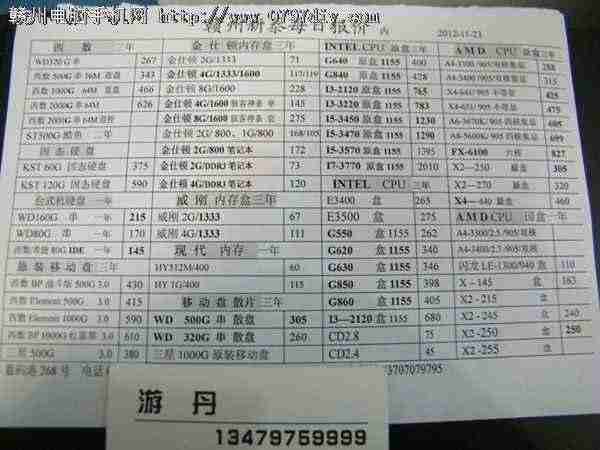 赣州电脑手机网 www.0797diy.com
赣州新泰每日报价 内 2012-11-23
西 数 三年
WD320G 串 267
西数 500G 串 16M 蓝盘 343
西数 1000G 串 64M 蓝 盘 466
西数 2000G 串 64M 626
ST500G 酷鱼 二年
固 态 硬 盘
KST 60G 固态硬盘 375
KST 120G 固态硬盘 590
台式机硬盘 一年
WD160G 串 一年 215
WD80G 串 一年 170
80G IDE 一年 145
原 装 移 动 盘 三年
430
西数 Element 500G 3.0 415
西数 Element 1000G 3.0 590
西数 BP 1000G 3.0 610
三星 500G 3.0 380
金 仕 顿内存盒三年
金仕顿 2G/1333 71
金仕顿 4G/1333/1600 117/119
金仕顿 8G/1600 228
金仕顿 4G/1600 骇客神条 单 145
金仕顿 8G/1600 骇客神条 套 275
金仕顿 2G/800、1G/800 168/105
金仕顿 2G/800 笔记本 172
金仕顿 2G/DDRJ 笔记本 73
金仕顿 4G/DDRJ 笔记本 120
威 刚 内存盒三年
威刚 2G/1333 67
威刚 4G/1333 111
现 代 内存 一年
HY512M/400 60
HY 1G/400 115
移 动 盘 散片 三年
WD 500G 串 散盘 305
WD 320G 串 散盘 260
三星 1000G 原装移动盘
INTEL CPU 原盒三年
G640 原盒 1155 400
G840 原盒 1155 428
I3-2120 原盒 1155 765
I3-3220 原盒 1155 783
I5-3450 原盒 1155 1230
I5-3470 原盒 1155 1290
I5-3570 原盒 1155 1395
I7-3770 原盒 1155 2010
INTEL CPU 三年
E3400 盒 265
E3500 盒 275
G550 盒 1155 262
G620 盒 1155 340
G630 盒 1155 346
G850 盒 1155 398
G860 盒 1155 405
I3—2120 盒 1155 680
CD2.8 75
CD2.4 45
A M D CPU 原盒三年
288
315
425
475
605
699
FX-6100 六核 827
X2—250 原盒 305
X2—270 原盒 320
X4—440 原盒 460
A M D CPU 国盒一年
A4-3300/2.5/905/双核
A4-3400/2.7/905/双核
闪龙 LE-1300/940 盒 110
X－145 盒 163
X2 -215 盒
X2 -245 盒 240
X2 -250 盒 250
X2 -255 盒
268 号 电话 13707079795
游 丹
13479759999